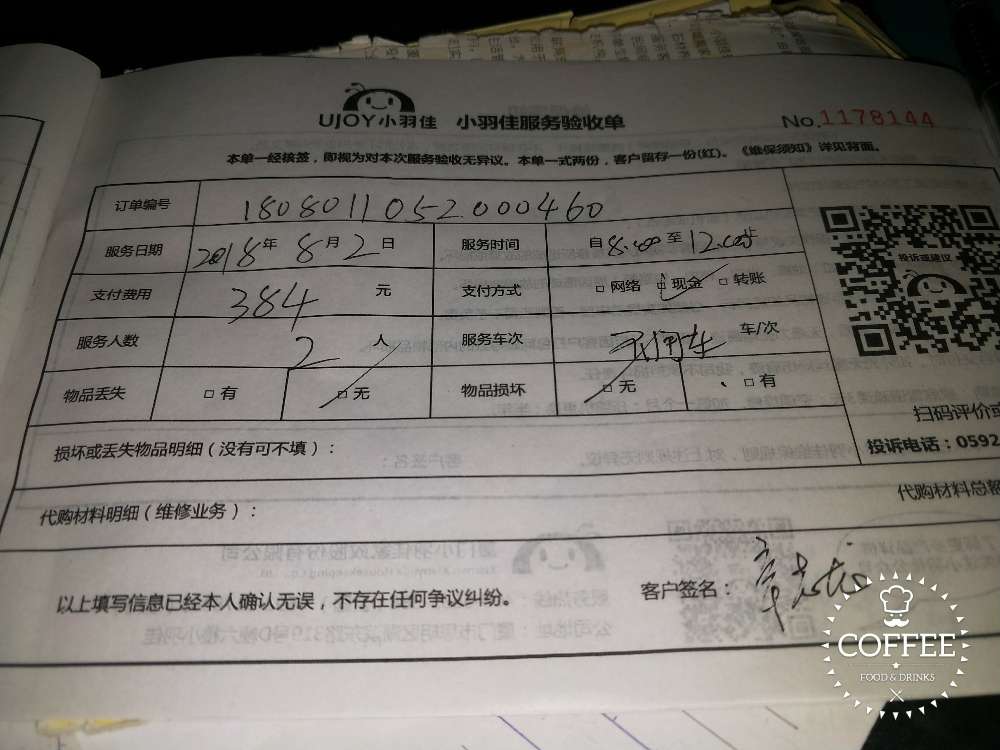 UJOY小羽佳 小羽佳服务验收单 No.1178144
本单一经核签，即视为对本次服务验收无异议。本单一式两份，客户留存一份(红)。《维保须知》详见背面。
订单编号 1808011052000460
服务日期 2018年 8月 2日 服务时间 自8:00至12:00止
支付费用 384 元 支付方式 □网络 □现金 □转账
服务人数 2 人 服务车次 车/次
物品丢失 □有 □无 物品损坏 □无 □有
投诉或建议
扫码评价或
损坏或丢失物品明细（没有可不填）： 投诉电话：0592
代购材料明细（维修业务）： 代购材料总额
以上填写信息已经本人确认无误，不存在任何争议纠纷。 客户签名：
COFFEE
FOOD & DRINKS